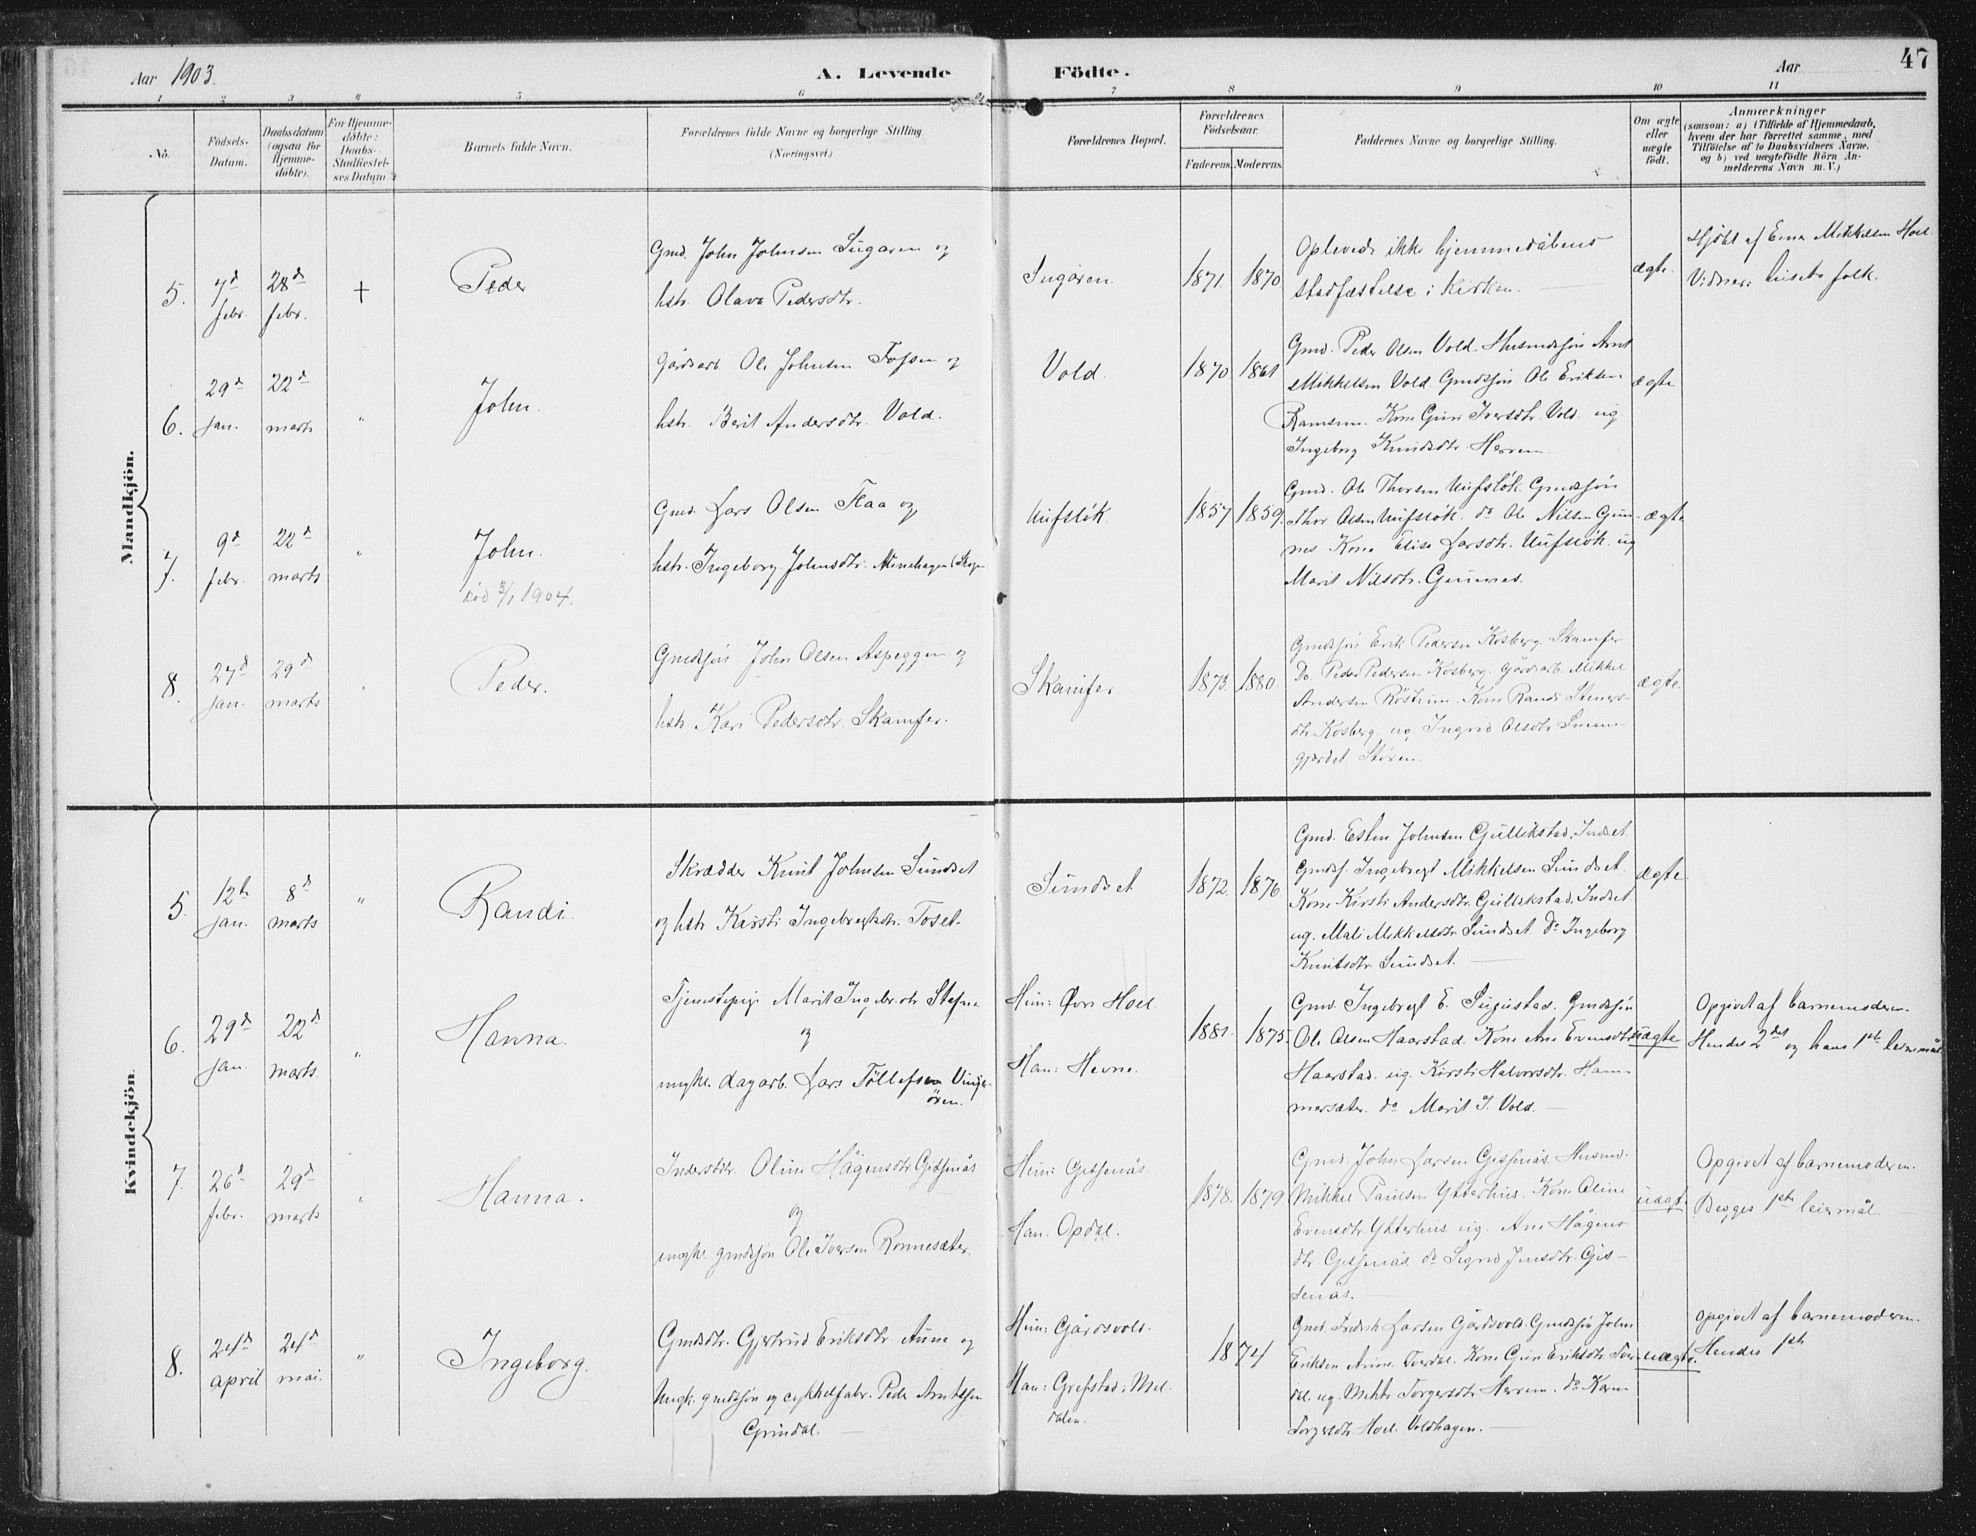 Aar 1903.
A. Levende
Födte.
Aar
47
1 2 3 4 5 6 7 8 9 10 11
No.
Födsels-
Datum.
Daabsdatum
(ogsaa for
Hjemme-
döbte).
For Hjemme-
döbte:
Daabs-
Stadfæstel-
ses Datum.
Barnets fulde Navn.
Forældrenes fulde Navne og borgerlige Stilling
(Næringsvei.)
Forældrenes Bopæl.
Forældrenes
Födselsaar.
Faderens. Moderens.
Faddernes Navne og borgerlige Stilling.
Om ægte
eller
uægte
födt.
Anmærkninger
(saasom: a) i Tilfælde af Hjemmedaab,
hvem der har forrettet samme, med
Tilföielse af to Daabsvidners Navne.
og b) ved uægtefödte Börn An-
melderens Navn m. V.)
Mandkjön.
5.
7d
febr.
28d
febr.
+
Peder
Gmd. John Johnsen Sugaren og
hstr. Olava Pedersdtr.
Sugaren.
1871. 1870
Oplevede ikke hjemmedåbens
stadfæstelse i kirken.
ægte.
Hjdbt af Mikkelsen Hoel.
Vidner: husets folk.
6.
29d
jan.
22d
marts
"
John.
Gårdsarb. Ole Johnsen Fossen og
hstr. Berit Andersdtr. Vold.
Vold.
1870 1861
Gmd. Peder Olsen Vold. Husmdsjön Arnt
Mikkelsen Vold. Gmdsjön Ole Eriksen
Ramsem. Kone Guri Iversdtr. Vold. ug
Ingeborg Knudsdtr. Herrem
ægte
7.
9d
febr.
22d
marts
"
John.
död 3/1 1904.
Gmd. Lars Olsen Flaa og
hstr. Ingeborg Johnsdtr.
1857 1859.
Gmd. Ole Thorsen Gmdsjön
Thor Olsen do Ole Nilsen Gun-
nes Kone Elise Larsdtr. ug
Marit Nilsdtr. Gunnes.
ægte
8.
27d
jan.
29d
marts
"
Peder.
Gmdsjön John Olsen Aspeggen og
hstr. Kari Pedersdtr. Skamfer.
Skamfer.
1873. 1880
Gmdsjön Erik Pedersen Kosberg. Skamfer
Do. Peder Pedersen Kosberg. Gårdsarb. Mikkel
Andersen Röstum. Kone Randi Steners-
dtr. Kosberg. ug. Ingrid Olsdtr.
gjærdet. Stören.
ægte.
Kvindekjön.
5.
12te
jan.
8d
marts
"
Randi.
Skrædder Knut Johnsen Sundset
og hstr. Kirsti Ingebregtsdtr. Toset.
Sundset
1872. 1876
Gmd. Esten Johnsen Gullikstad, Indset
Gmdsj. Ingebregt Mikkelsen Sundset.
Kone Kirsti Andersdtr. Gullikstad, Indset
ug. Mali Mikkelsdtr. Sundset. Do Ingeborg
Knutsdtr. Sundset.
ægte
6.
29d
jan.
22d
marts.
"
Hanna.
Tjenestepige Marit Ingebr.dtr. Stefne
og
ungkl. dagarb. Lars Tollefsen Vinge-
ören.
Hun: Övre Hoel.
Han: Hevne.
1881. 1875.
Gmd. Ingebregt E. Gmdsjön
Ole Olsen Haarstad. Kone Ane Evensdtr.
Haarstad. ug. Kirsti Halvorsdtr. Ham-
mersæter. do Marit I. Vold.
uægte
Opgivet af barnemoderen.
Hendes 2det og hans 1ste leiermål.
7.
26d
febr.
29d
marts
"
Hanna.
Inderstdtr. Oline Hågensdtr. Gisnås
og
ungkl. gmdsjön Ole Iversen Rönnesæter.
Hun: Gisnås.
Han: Opdal.
1878. 1879.
Gmd. John Larsen Gisnås. Husmd.
Mikkel Paulsen Ytterhus. Kone Oline
Evensdtr. Ytterhus ug. Ane Hågens-
dtr. Gisnås do Sigrid Jensdtr. Gis-
nås.
uægte
Opgivet af barnemoderen.
Begges 1ste leiermål.
8.
24d
april
24d
mai.
"
Ingeborg.
Gmdsdtr. Gjertrud Eriksdtr. Aune og
Ungk. gmdsjön og cykkelfabr. Peder Arntsen
Grindal.
Hun: Gårdsvold.
Han: Grefstad, Mel-
dalen.
1874
Gmd. Fredrik Larsen Gårdsvold. Gmdsjön John
Eriksen Aune. Kone Guri Eriksdtr.
ug. Torgersdtr. Herrem. do Karen
Torgersdtr. Hoel. Voldhagen.
uægte.
Opgivet af barnemoderen.
Hendes 1ste